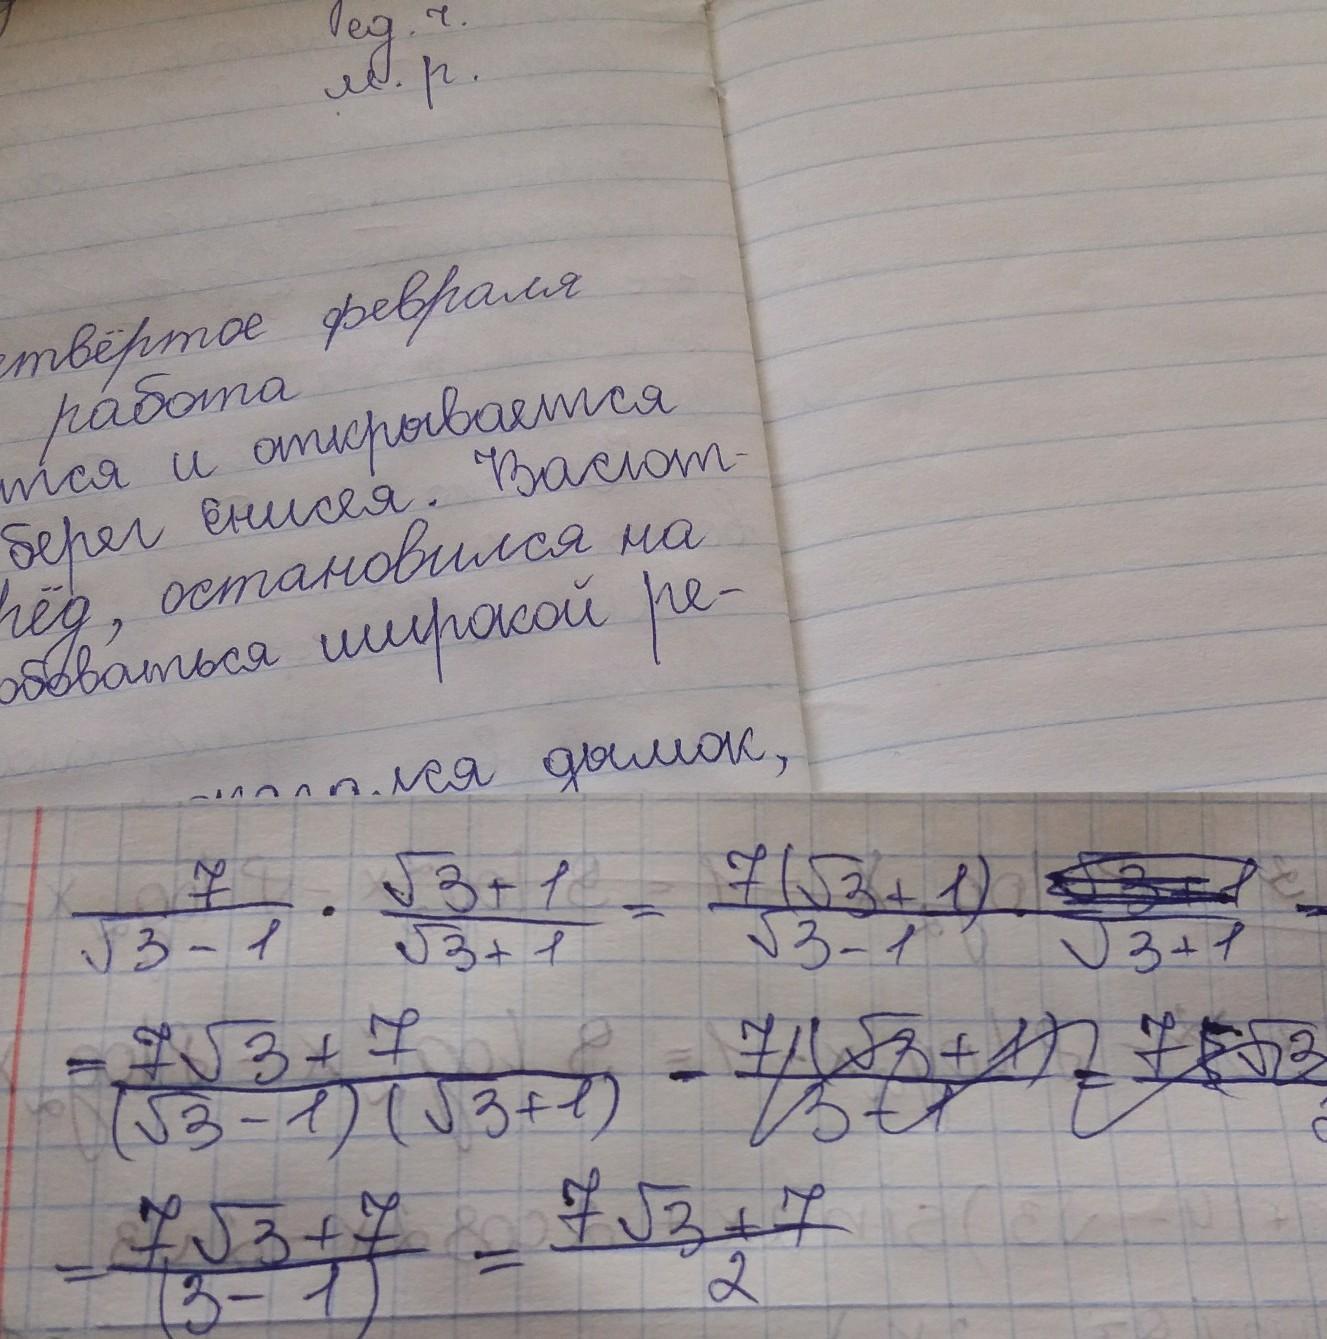 ед. ч.
м. р.
етвёртое февраля
работа
ится и открывается
берег Енисея. Васют-
рёд, остановился на
юбоваться широкой ре-
лся дымок,
7/(√3 - 1) · (√3 + 1)/(√3 + 1) = 7(√3 + 1)/(√3 - 1) · /(√3 + 1) =
= (7√3 + 7)/((√3 - 1)(√3 + 1)) = 7(√3 + 1)/(3 - 1) = 7√3
= (7√3 + 7)/(3 - 1) = (7√3 + 7)/2